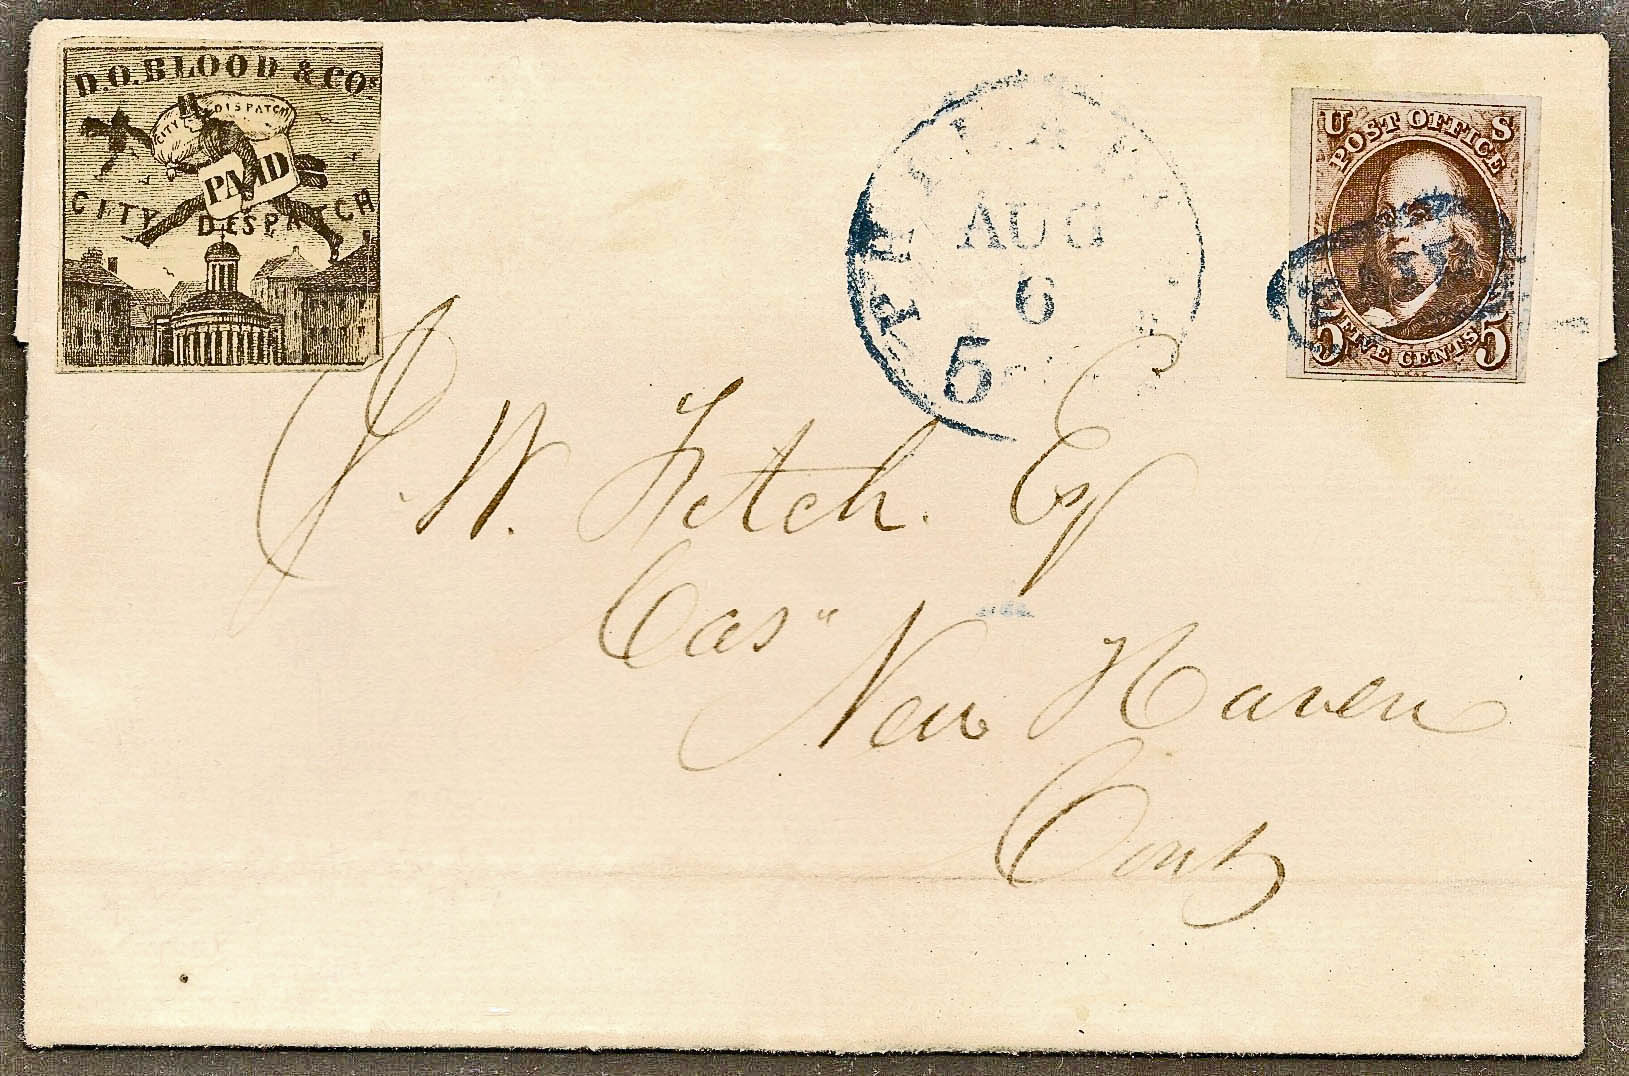 D.O. BLOOD & COs
CITY DISPATCH
PAID
CITY DESPATCH
AUG
6
5
U S
POST OFFICE
PAID
5 FIVE CENTS 5
J. W. Fetch. Esq
Cas"
New Haven
Cont